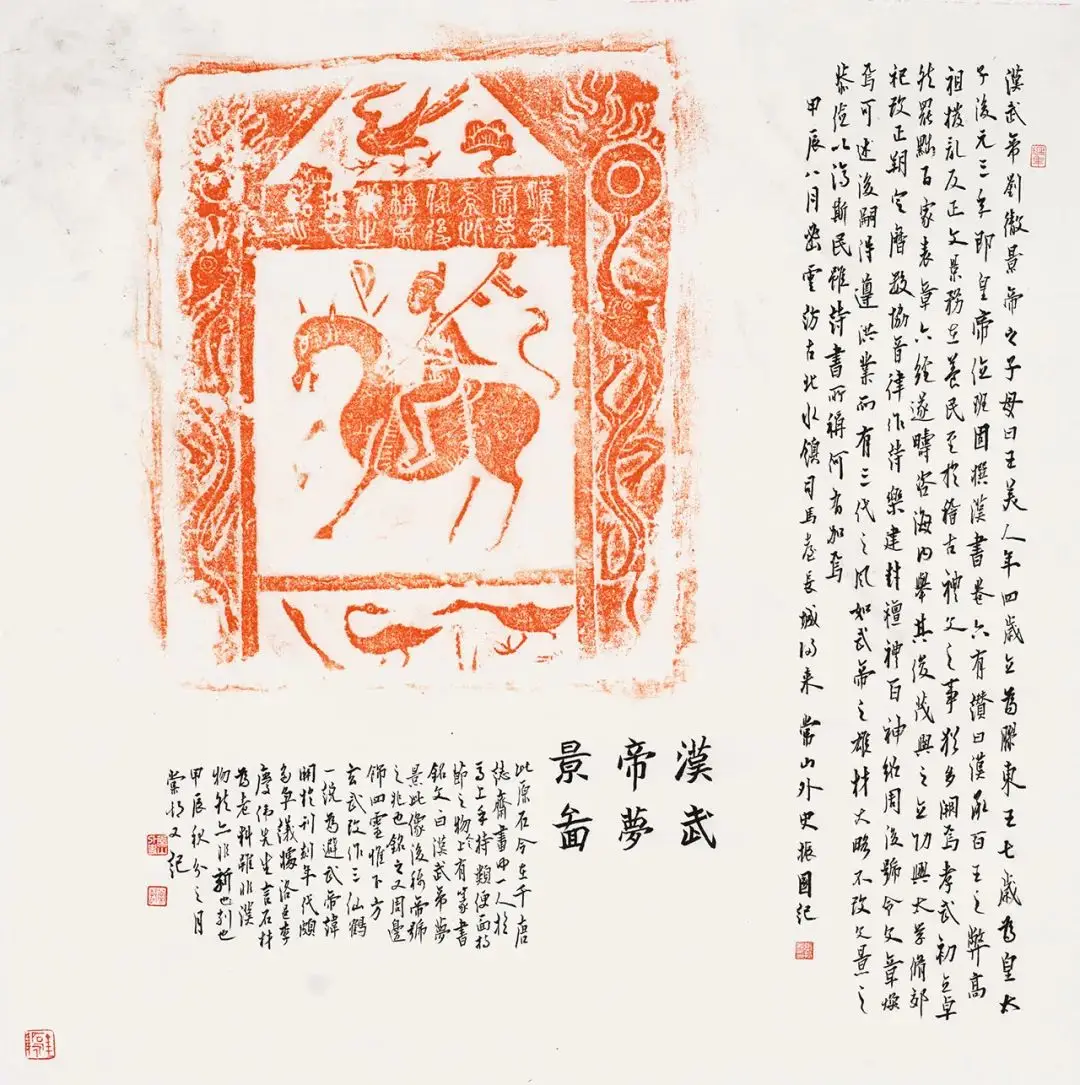 漢武帝劉徹景帝之子母曰王美人年四歲立為膠東王七歲為皇太
子後元三年即皇帝位班固撰漢書卷六有讚曰漢承百王之弊高
祖撥亂反正文景務在養民至於稽古禮文之事猶多闕焉孝武初立卓
然罷黜百家表章六經遂疇咨海內舉其俊茂與之立功興太學脩郊
祀改正朔定曆數協音律作詩樂建封禪禮百神紹周後號令文章煥
焉可述後嗣得遵洪業而有三代之風如武帝之雄材大略不改文景之
恭儉以濟斯民雖詩書所稱何有加焉
甲辰八月密雲訪古北水鎮司馬臺長城歸來 常山外史振國紀
漢武
帝夢
景圖
此原石今在千唐
誌齋畫中一人於
馬上手持類便面持
節之物於上有篆書
銘文曰漢武帝夢
景此像後稱帝號
之兆也銘之又周邊
飾四靈惟下方
玄武改作三仙鶴
一說為避武帝諱
關於刊刻年代頗
多爭議據洛邑李
為老料雖非漢
物於六非新也刻也
甲辰秋分之月
漢武
帝夢
景此
像後
稱帝